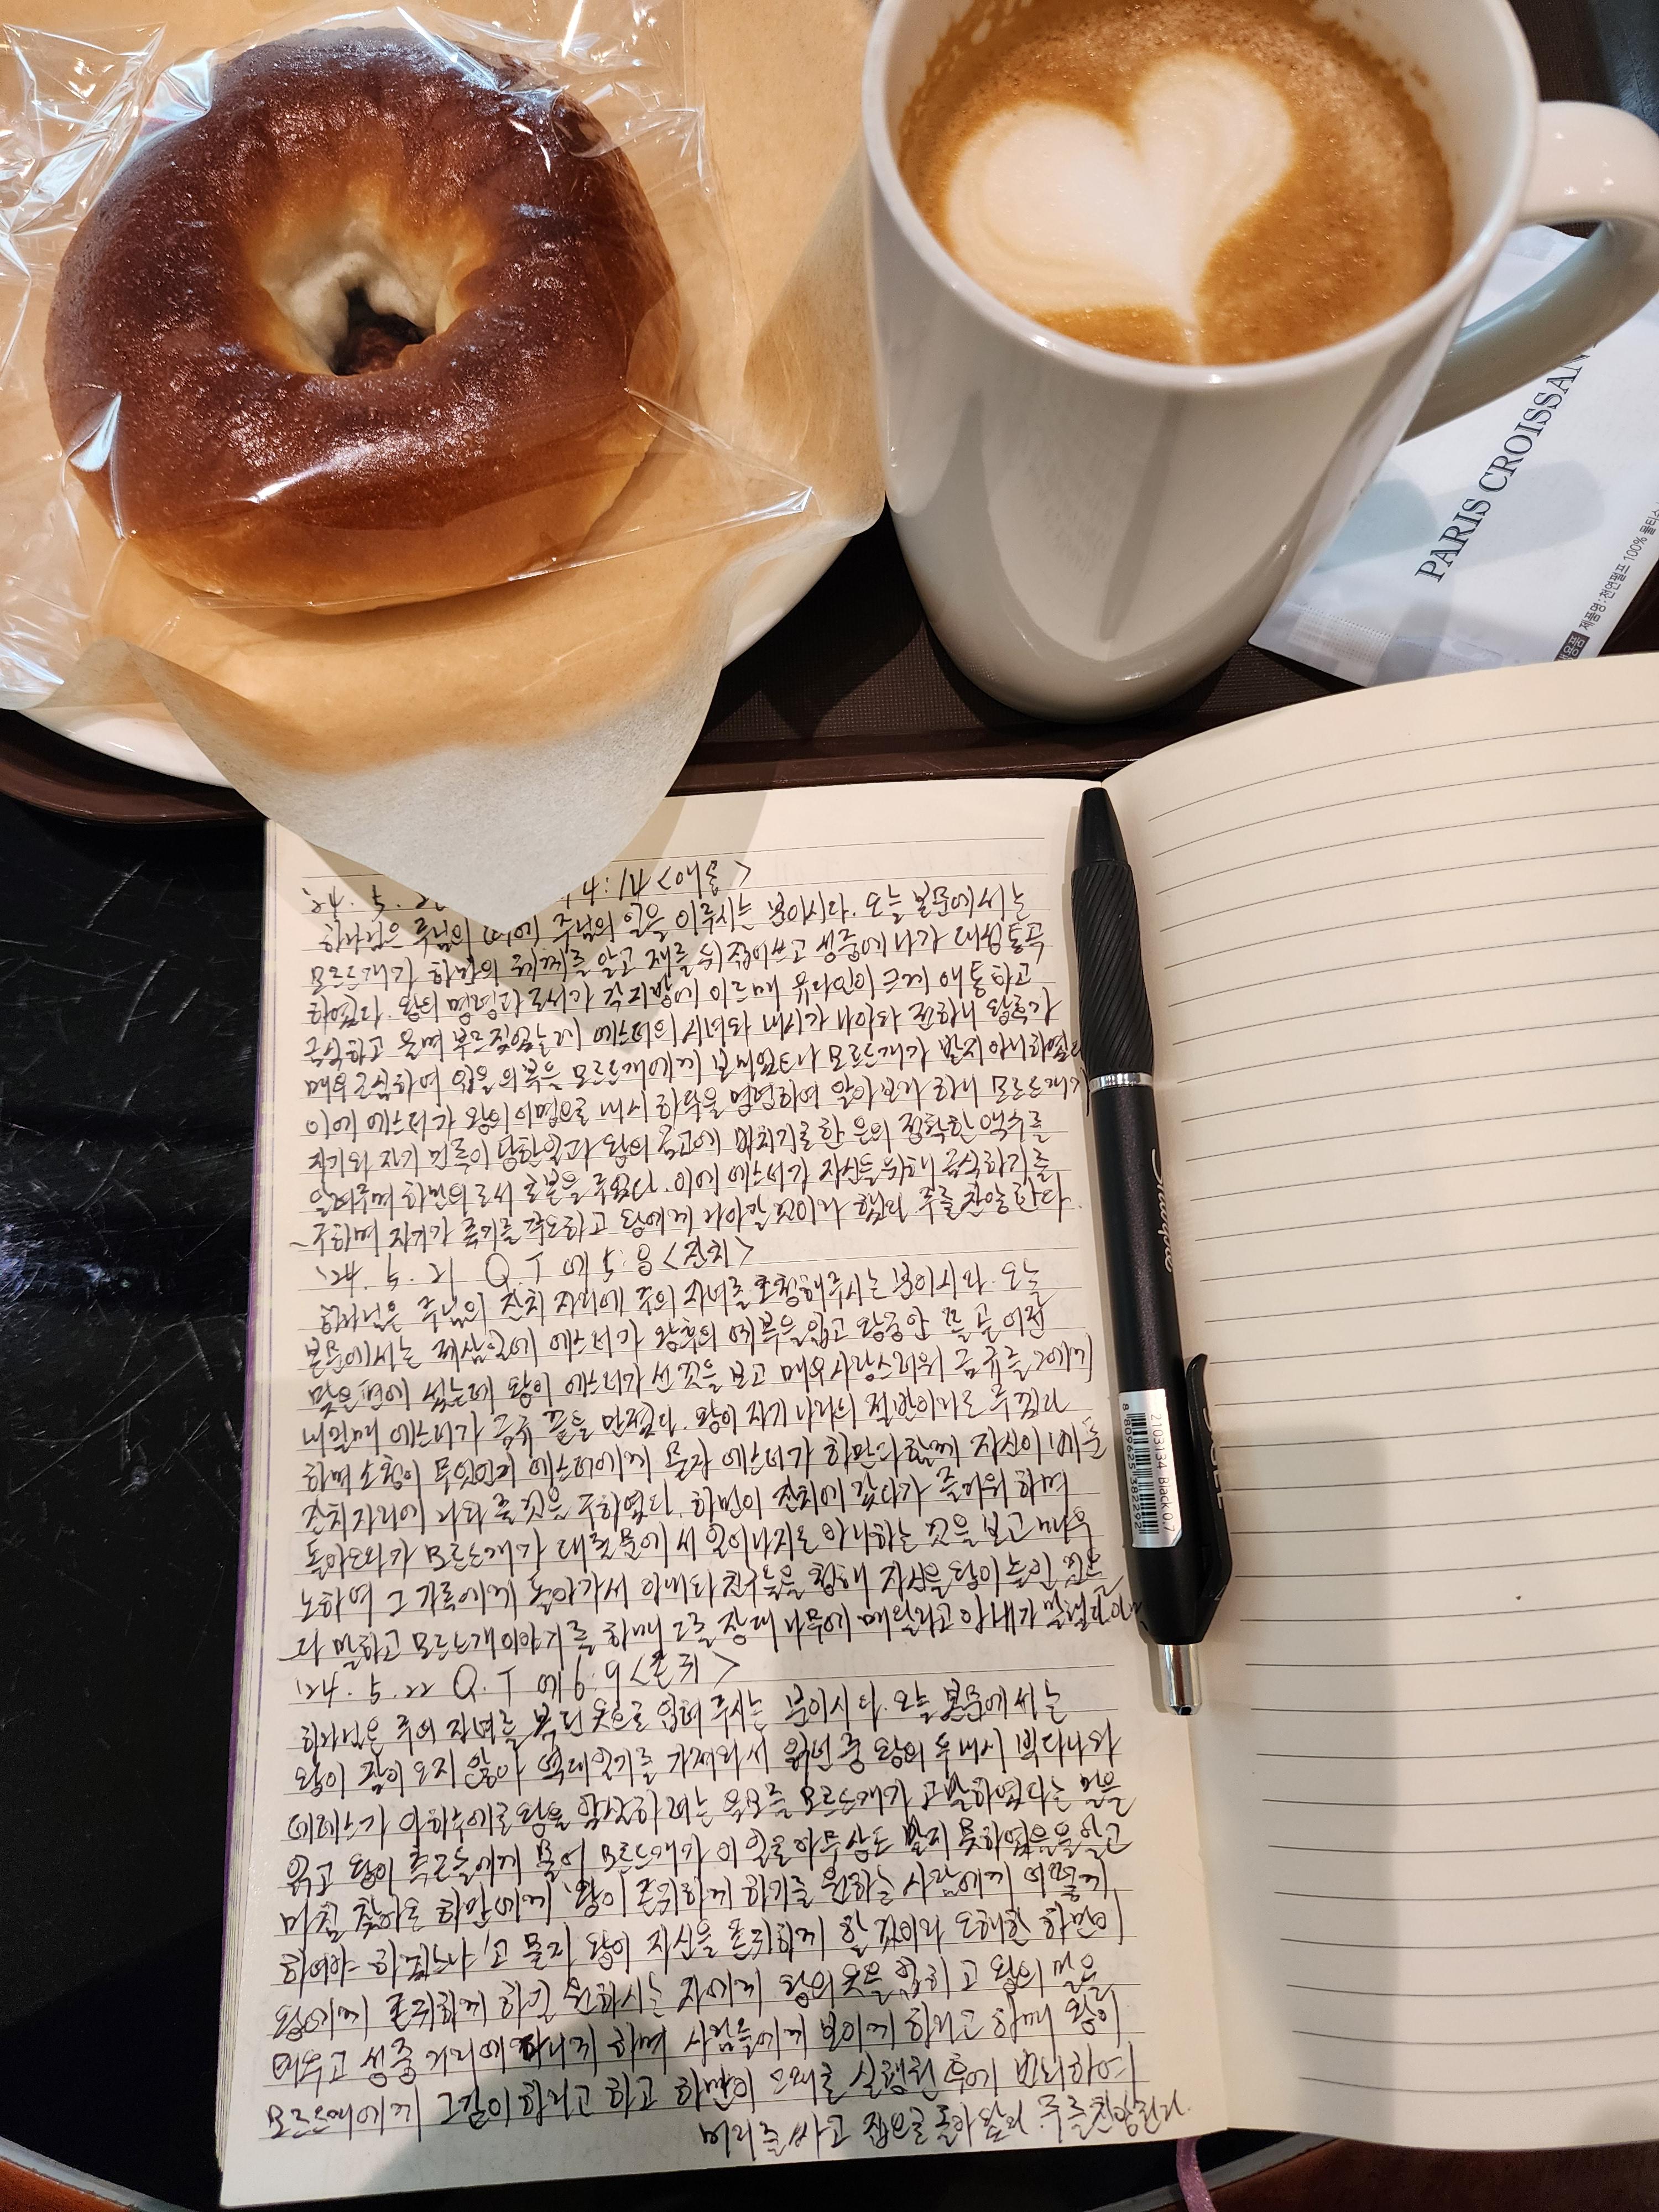 PARIS CROISSAN
제품명:천연펄프 100% 물티슈
'24. 5. 2 4:14 <애통>
하나님은 주님의 때에 주님의 일을 이루시는 분이시다. 오늘 본문에서는
모르드개가 하만의 궤계를 알고 재를 뒤집어쓰고 성중에 나가 대성통곡
하였다. 왕의 명령과 조서가 각 지방에 이르매 유다인이 크게 애통하고
금식하고 울며 부르짖었는데 에스더의 시녀와 내시가 나아와 전하니 왕후가
매우 근심하여 입을 의복을 모르드개에게 보내었으나 모르드개가 받지 아니하였다
이에 에스더가 왕의 어명으로 내시 하닥을 명령하여 알아보라 하니 모르드개가
자기와 자기 민족이 당한일과 왕의 금고에 바치기로한 은의 정확한 액수를
알려주며 하만의 조서 초본을 주었다. 이에 에스더가 자신을 위해 금식하기를
구하며 자기가 죽기를 각오하고 왕에게 나아갈 것이라 했다 주를 찬양한다.
'24. 5. 21 Q.T 에5:8 <잔치>
하나님은 주님의 잔치 자리에 주의 자녀를 초청해주시는 분이시다. 오늘
본문에서는 제삼일에 에스더가 왕후의 예복을 입고 왕궁안 뜰 곧 어전
맞은편에 섰는데 왕이 에스더가 선 것을 보고 매우 사랑스러워 금규를 그에게
내밀매 에스더가 금규 끝을 만졌다. 왕이 자기 나라의 절반이라도 주겠다
하며 소청이 무엇인지 에스더에게 묻자 에스더가 하만과 함께 자신이 베푼
잔치자리에 나와 줄 것을 구하였다. 하만이 잔치에 갔다가 즐거워 하며
돌아오다가 모르드개가 대궐문에서 일어나지도 아니하는 것을 보고 매우
노하여 그 가족에게 돌아가서 아내와 친구들을 청해 자신을 왕이 높인 것
다 말하고 모르드개이야기를 하매 그를 장대 나무에 매달라고 아내가 말했다
'24. 5. 22 Q.T 에6:9 <존귀>
하나님은 주의 자녀를 복된 옷으로 입혀 주시는 분이시다. 오늘 본문에서는
왕이 잠이 오지 않아 역대일기를 가져와서 읽던 중 왕의 두 내시 빅다나와
데레스가 아하수에로왕을 암살하려는 음모를 모르드개가 고발하였다는 일을
읽고 왕이 측근들에게 물어 모르드개가 이 일로 아무상도 받지 못하였음을 알고
마침 찾아온 하만에게 '왕이 존귀하게 하기를 원하는 사람에게 어떻게
하여야 하겠느냐'고 묻자 왕이 자신을 존귀하게 할 것이라 오해한 하만이
왕에게 존귀하게 하길 원하시는 자에게 왕의옷을 입히고 왕의 말을
태우고 성중 거리에 다니게 하며 사람들에게 보이게 하라고 하매 왕이
모르드개에게 그같이 하라고 하고 하만이 그대로 실행한 후에 번뇌하여
머리를 싸고 집으로 돌아왔다 주를찬양한다.
Sharpie
2103134 Black 0.7
8 809625 382292